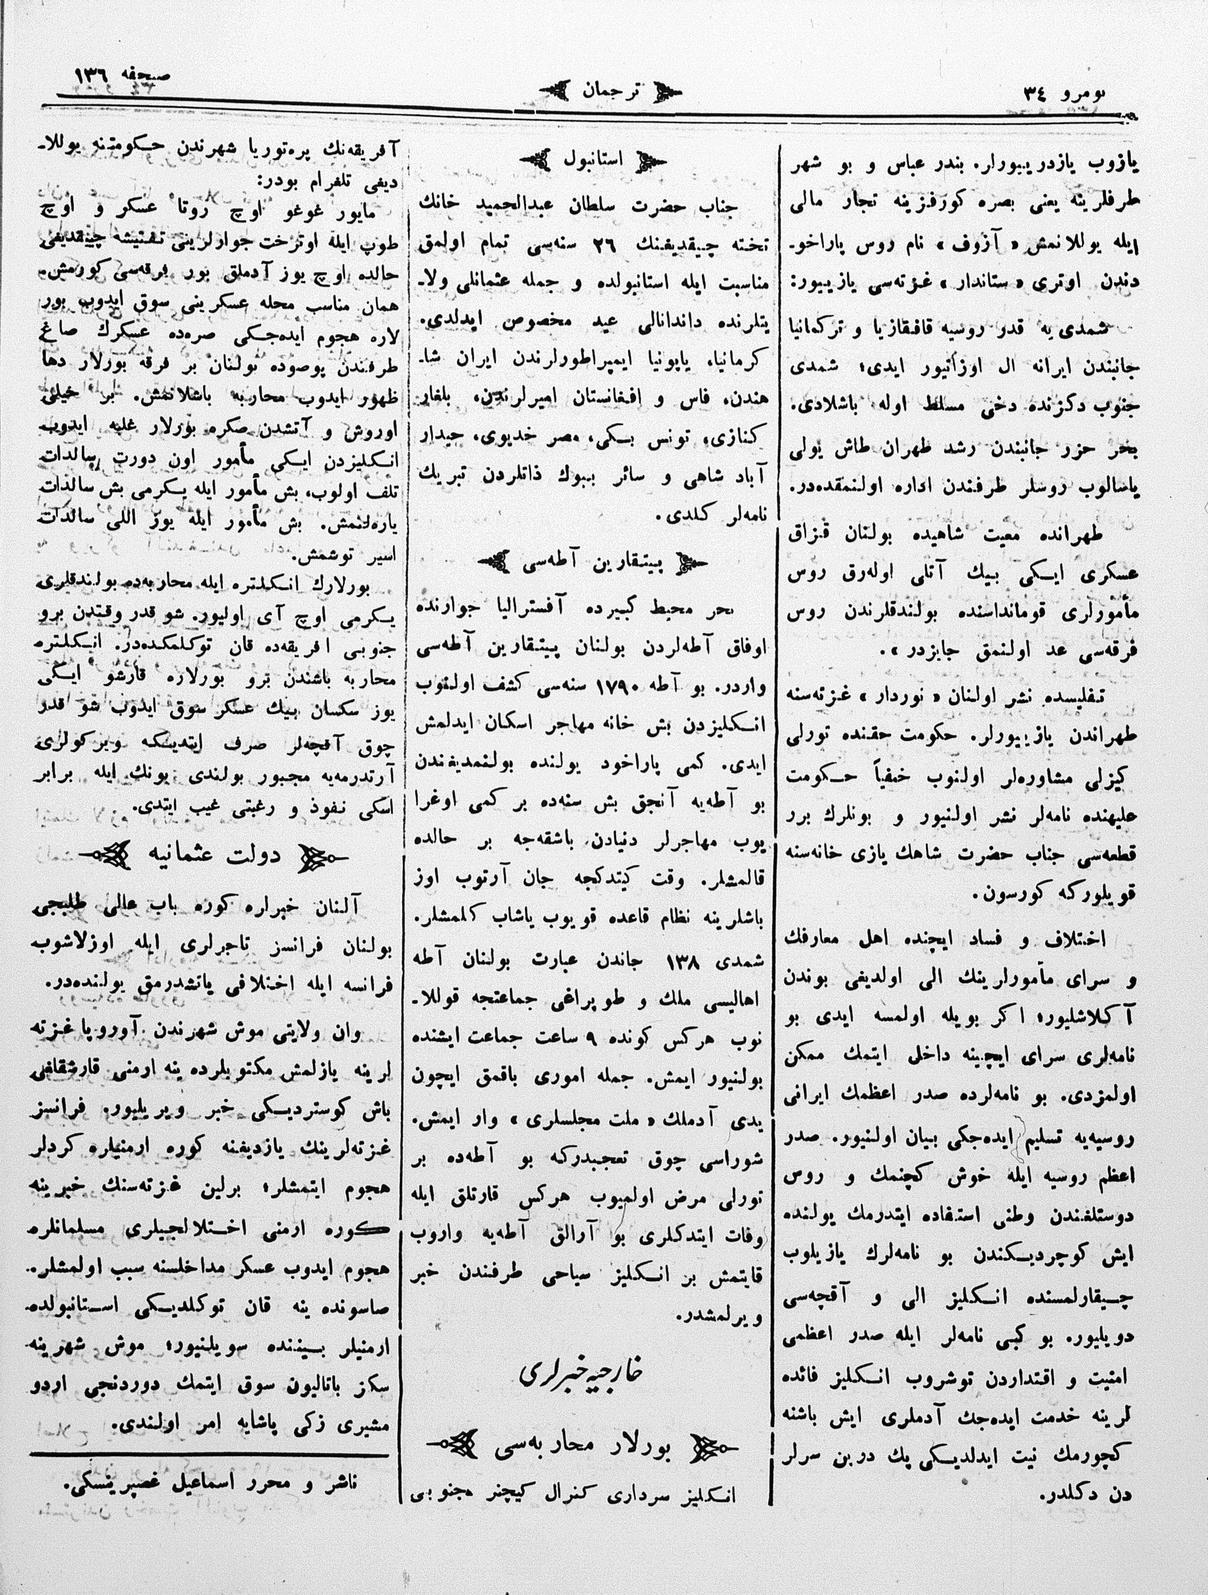 نومرو ٣٤
ترجمان
صحفه ١٣٦
يازوب يازدرييورلر. بندر عباس و بو شهر
طرفلرينه يعنى بصره كورفزينه تجار مالى
ايله يوللانمش «آزوف» نام روس پاراخو-
دندن اوترى «ستاندار» غزته‌سى يازييور:
شمدى‌يه قدر روسيه قافقازيا و تركمانيا
جانبندن ايرانه ال اوزاتيور ايدى؛ شمدى
جنوب دكزنده دخى مسلط اوله باشلادى.
بحر حزر جانبندن رشد طهران طاش يولى
ياصالوب روسلر طرفندن اداره اولنمقده‌در.
طهرانده معيت شاهيده بولنان قزاق
عسكرى ايكى بيك آتلى اوله‌رق روس
مأمورلرى قومانداسنده بولندقلرندن روس
فرقه‌سى عد اولنمق جايزدر».
تفليسده نشر اولنان «نوردار» غزته‌سنه
طهراندن يازييورلر. حكومت حقنده تورلى
كيزلى مشاوره‌لر اولنوب خفياً حكومت
عليهنده نامه‌لر نشر اولنيور و بونلرك برر
قطعه‌سى جناب حضرت شاهك يازى خانه‌سنه
قويلوركه كورسون.
اختلاف و فساد ايچنده اهل معارفك
و سراى مأمورلرينك الى اولديغى بوندن
آكلاشليور؛ اكر بويله اولمسه ايدى بو
نامه‌لرى سراى ايچينه داخل ايتمك ممكن
اولمزدى. بو نامه‌لرده صدر اعظمك ايرانى
روسيه‌يه تسليم ايده‌جكى بيان اولنيور. صدر
اعظم روسيه ايله خوش كچنمك و روس
دوستلغندن وطنى استفاده ايتدرمك يولنده
ايش كوچرديكندن بو نامه‌لرك يازيلوب
چيقارلمسنده انكليز الى و آقچه‌سى
دويليور. بو كبى نامه‌لر ايله صدر اعظمى
امنيت و اقتداردن توشروب انكليز فائده
لرينه خدمت ايده‌جك آدملرى ايش باشنه
كچورمك نيت ايدلديكى پك درين سرلر
دن دكلدر.
استانبول
جناب حضرت سلطان عبدالحميد خانك
تخته چيقديغنك ٢٦ سنه‌سى تمام اولمق
مناسبت ايله استانبولده و جمله عثمانلى ولا-
يتلرنده داندانالى عيد مخصوص ايدلدى.
كرمانيا، يابونيا ايمپراطورلرندن ايران شا-
هندن، فاس و افغانستان اميرلرندن، بلغار
كنازى، تونس بكى، مصر خديوى، حيدار
آباد شاهى و سائر بيوك ذاتلردن تبريك
نامه‌لر كلدى.
پيتقارين آطه‌سى
بحر محيط كبيرده آفستراليا جوارنده
اوفاق آطه‌لردن بولنان پيتقارين آطه‌سى
واردر. بو آطه ١٧٩٠ سنه‌سى كشف اولنوب
انكليزدن بش خانه مهاجر اسكان ايدلمش
ايدى. كمى پاراخود يولنده بولنمديغندن
بو آطه‌يه آنجق بش سنه‌ده بر كمى اوغرا
يوب مهاجرلر دنيادن باشقه‌جه بر حالده
قالمشلر. وقت كيتدكجه جان آرتوب اوز
باشلرينه نظام قاعده قويوب ياشاب كلمشلر.
شمدى ١٣٨ جاندن عبارت بولنان آطه
اهاليسى ملك و طوپراغى جماعتجه قوللا-
نوب هركس كونده ٩ ساعت جماعت ايشنده
بولنيور ايمش. جمله امورى باقمق ايچون
يدى آدملك «ملت مجلسلرى» وار ايمش.
شوراسى چوق تعجبدركه بو آطه‌ده بر
تورلى مرض اولميوب هركس قارتلق ايله
وفات ايتدكلرى بو آرالق آطه‌يه واروب
قايتمش بر انكليز سياحى طرفندن خبر
ويرلمشدر.
خارجيه خبرلرى
بورلار محاربه‌سى
انكليز سردارى كنرال كيچنر جنوبى
آفريقه‌نك پره‌توريا شهرندن حكومتنه يوللا-
ديغى تلغرام بودر:
مايور غوغو اوچ روتا عسكر و اوچ
طوپ ايله اوترخت جوارلرينى تفتيشه چيقديغى
حالده اوچ يوز آدملق بور فرقه‌سى كورمش.
همان مناسب محله عسكرينى سوق ايدوب بور
لاره هجوم ايده‌جكى صره‌ده عسكرك صاغ
طرفندن پوصوده بولنان بر فرقه بورلار دها
ظهور ايدوب محاربه باشلانمش. بر خيلى
اوروش و آتشدن صكره بورلار غلبه ايدوب
انكليزدن ايكى مأمور اون دورت سالدات
تلف اولوب، بش مأمور ايله يكرمى بش سالدات
ياره‌لنمش. بش مأمور ايله يوز اللى سالدات
اسير توشمش.
بورلارك انكلتره ايله محاربه‌ده بولندقلرى
يكرمى اوچ آى اوليور. شو قدر وقتدن برو
جنوبى افريقه‌ده قان توكلمكده‌در. انكلتره
محاربه باشندن برو بورلاره قارشو ايكى
يوز سكسان بيك عسكر سوق ايدوب شو قدر
چوق آقچه‌لر صرف ايتديكه ويركولرى
آرتدرمه‌يه مجبور بولندى بونك ايله برابر
اسكى نفوذ و رغبتى غيب ايتدى.
دولت عثمانيه
آلنان خبراره كوره باب عالى طلبجى
بولنان فرانسز تاجرلرى ايله اوزلاشوب
فرانسه ايله اختلافى ياتشدرمق يولنده‌در.
وان ولايتى موش شهرندن آوروپا غزته
لرينه يازلمش مكتوبلرده ينه ارمنى قارشقلغى
باش كوسترديكى خبر ويريليور. فرانسز
غزته‌لرينك يازديغنه كوره ارمنيلره كردلر
هجوم ايتمشلر؛ برلين غزته‌سنك خبرينه
كوره ارمنى اختلالجيلرى مسلمانلره
هجوم ايدوب عسكر مداخلسنه سبب اولمشلر.
صاسونده ينه قان توكلديكى استانبولده
ارمنيلر بيننده سويلنيور؛ موش شهرينه
سكز باتاليون سوق ايتمك دوردنجى اردو
مشيرى زكى پاشايه امر اولندى.
ناشر و محرر اسماعيل غصپرينسكى.